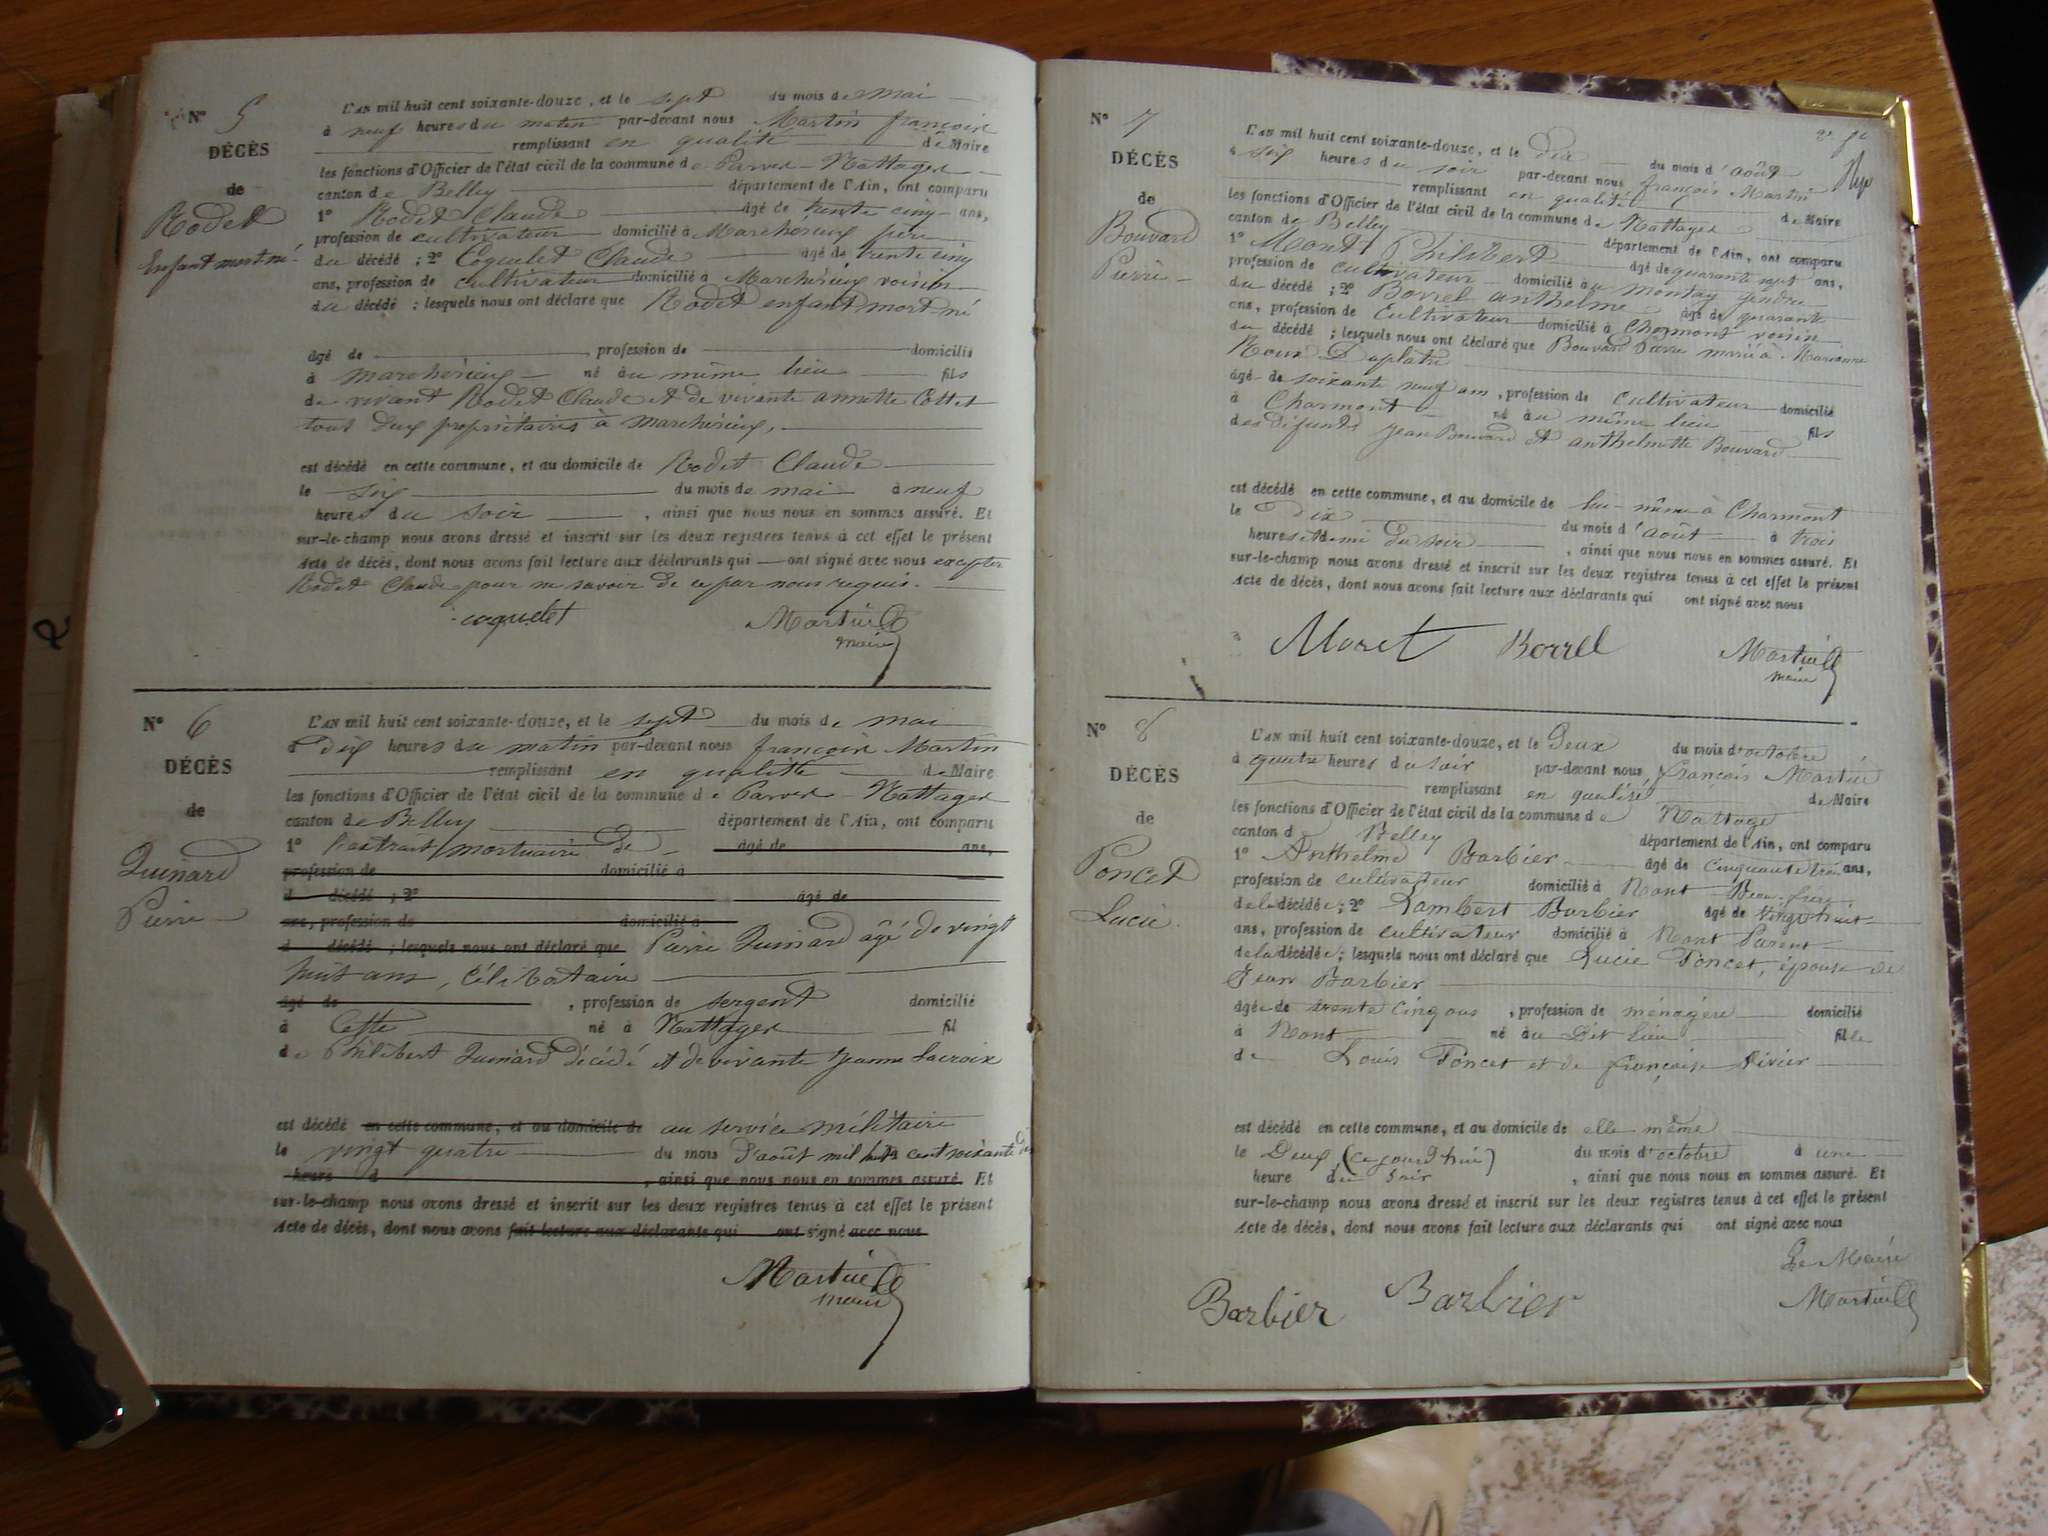 N° 5
DÉCÈS
de
Rodet
Enfant mort-né
L'AN mil huit cent soixante-douze, et le sept du mois de mai
à neuf heures du matin par-devant nous Martin françois
remplissant en qualité de Maire
les fonctions d'Officier de l'état civil de la commune de Parves-Nattages
canton de Belley département de l'Ain, ont comparu
1° Rodet Claude âgé de trente cinq ans,
profession de cultivateur domicilié à Marchérieux père
du décédé ; 2° Coquelet Claude âgé de trente cinq
ans, profession de cultivateur domicilié à Marchérieux voisin
du décédé ; lesquels nous ont déclaré que Rodet enfant mort-né
âgé de profession de domicilié
à Marchérieux né au même lieu fils
de vivant Rodet Claude et de vivante annette Cottet
tout deux propriétaires à Marchérieux,
est décédé en cette commune, et au domicile de Rodet Claude
le six du mois de mai à neuf
heures du soir , ainsi que nous nous en sommes assuré. Et
sur-le-champ nous avons dressé et inscrit sur les deux registres tenus à cet effet le présent
Acte de décès, dont nous avons fait lecture aux déclarants qui ont signé avec nous excepter
Rodet Claude pour ne savoir de ce par nous requis.
coquelet Martin
maire
N° 6
DÉCÈS
de
Quinard
Pierre
L'AN mil huit cent soixante-douze, et le sept du mois de mai
à Dix heures du matin par-devant nous françois Martin
remplissant en qualitte de Maire
les fonctions d'Officier de l'état civil de la commune de Parves-Nattages
canton de Belley département de l'Ain, ont comparu
1° l'extrait mortuaire de âgé de ans,
profession de domicilié à
d décédé ; 2° âgé de
ans, profession de domicilié à
d décédé ; lesquels nous ont déclaré que Pierre Quinard âgé de vingt
huit ans, célibataire
âgé de , profession de sergent domicilié
à Cette né à Nattages fil
de Philibert Quinard décédé et de vivante Jeanne Lacroix
est décédé en cette commune, et au domicile de au service militaire
le vingt quatre du mois d'août mil huit cent soixante dix
heure d , ainsi que nous nous en sommes assuré. Et
sur-le-champ nous avons dressé et inscrit sur les deux registres tenus à cet effet le présent
Acte de décès, dont nous avons fait lecture aux déclarants qui ont signé avec nous
Martin
maire
N° 7
DÉCÈS
de
Bouvard
Pierre
L'AN mil huit cent soixante-douze, et le dix du mois d'août
à six heures du soir par-devant nous françois Martin
remplissant en qualité de Maire
les fonctions d'Officier de l'état civil de la commune de Nattages
canton de Belley département de l'Ain, ont comparu
1° Philibert âgé de quarante sept ans,
profession de cultivateur domicilié au montay gendre
du décédé ; 2° Borrel anthelme âgé de quarante
ans, profession de cultivateur domicilié à Charmont voisin
du décédé ; lesquels nous ont déclaré que Bouvard Pierre marié à Marianne
âgé de soixante neuf ans, profession de cultivateur domicilié
à Charmont né au même lieu fils
des défunts Jean Bouvard et anthelmette Bouvard
est décédé en cette commune, et au domicile de lui-même à Charmont
le Dix du mois d'août à trois
heures et demi du soir , ainsi que nous nous en sommes assuré. Et
sur-le-champ nous avons dressé et inscrit sur les deux registres tenus à cet effet le présent
Acte de décès, dont nous avons fait lecture aux déclarants qui ont signé avec nous
Moret Borrel Martin
maire
N° 8
DÉCÈS
de
Poncet
Lucie
L'AN mil huit cent soixante-douze, et le Deux du mois d'octobre
à quatre heures du soir par-devant nous françois Martin
remplissant en qualité de Maire
les fonctions d'Officier de l'état civil de la commune de Nattages
canton de Belley département de l'Ain, ont comparu
1° Anthelme Barbier âgé de cinquante trois ans,
profession de cultivateur domicilié à Nant Beau-frère
de la décédée ; 2° Lambert Barbier âgé de vingt huit
ans, profession de cultivateur domicilié à Nant Parent
de la décédée ; lesquels nous ont déclaré que Lucie Poncet, épouse de
Jean Barbier
âgée de trente cinq ans , profession de ménagère domicilié
à Nant né au Dit lieu fille
de Louis Poncet et de françoise
est décédé en cette commune, et au domicile de elle même
le Deux (ce jourd'hui) du mois d'octobre à une
heure du soir , ainsi que nous nous en sommes assuré. Et
sur-le-champ nous avons dressé et inscrit sur les deux registres tenus à cet effet le présent
Acte de décès, dont nous avons fait lecture aux déclarants qui ont signé avec nous
Le Maire
Barbier Barbier Martin